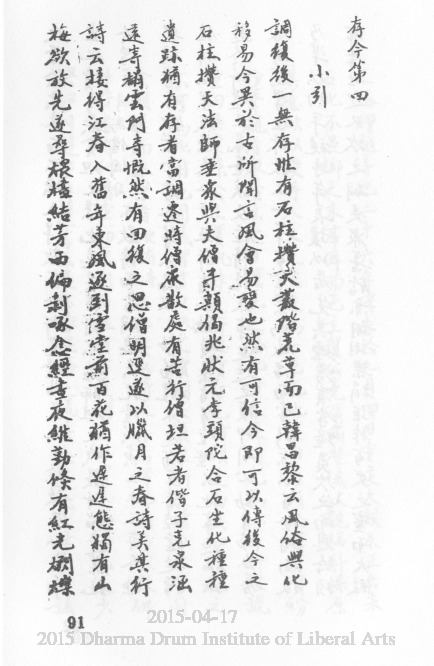 存今第四
小引
調復後一無存惟有石柱攢天叢階荒草而已韓昌黎云風俗與化
移易今異於古所聞言風會易變也然有可信今即可以傳後今之
石柱攢天法師垂象與夫僧寺類偈兆狀元李頭陀合石坐化種種
遺跡猶有存者當調遷時僧眾散處有苦行僧坦若者偕子克泉涵
遠寄頓雲門寺慨然有回後之思僧明選遂以臘月之春詩美其行
詩云接得江春入舊年東風逐到雪堂前百花猶作遲遲態獨有山
梅欲放先遂尋根壚結芳西偏剃啄念經晝夜維勤倏有紅光爛爍
91
2015-04-17
2015 Dharma Drum Institute of Liberal Arts